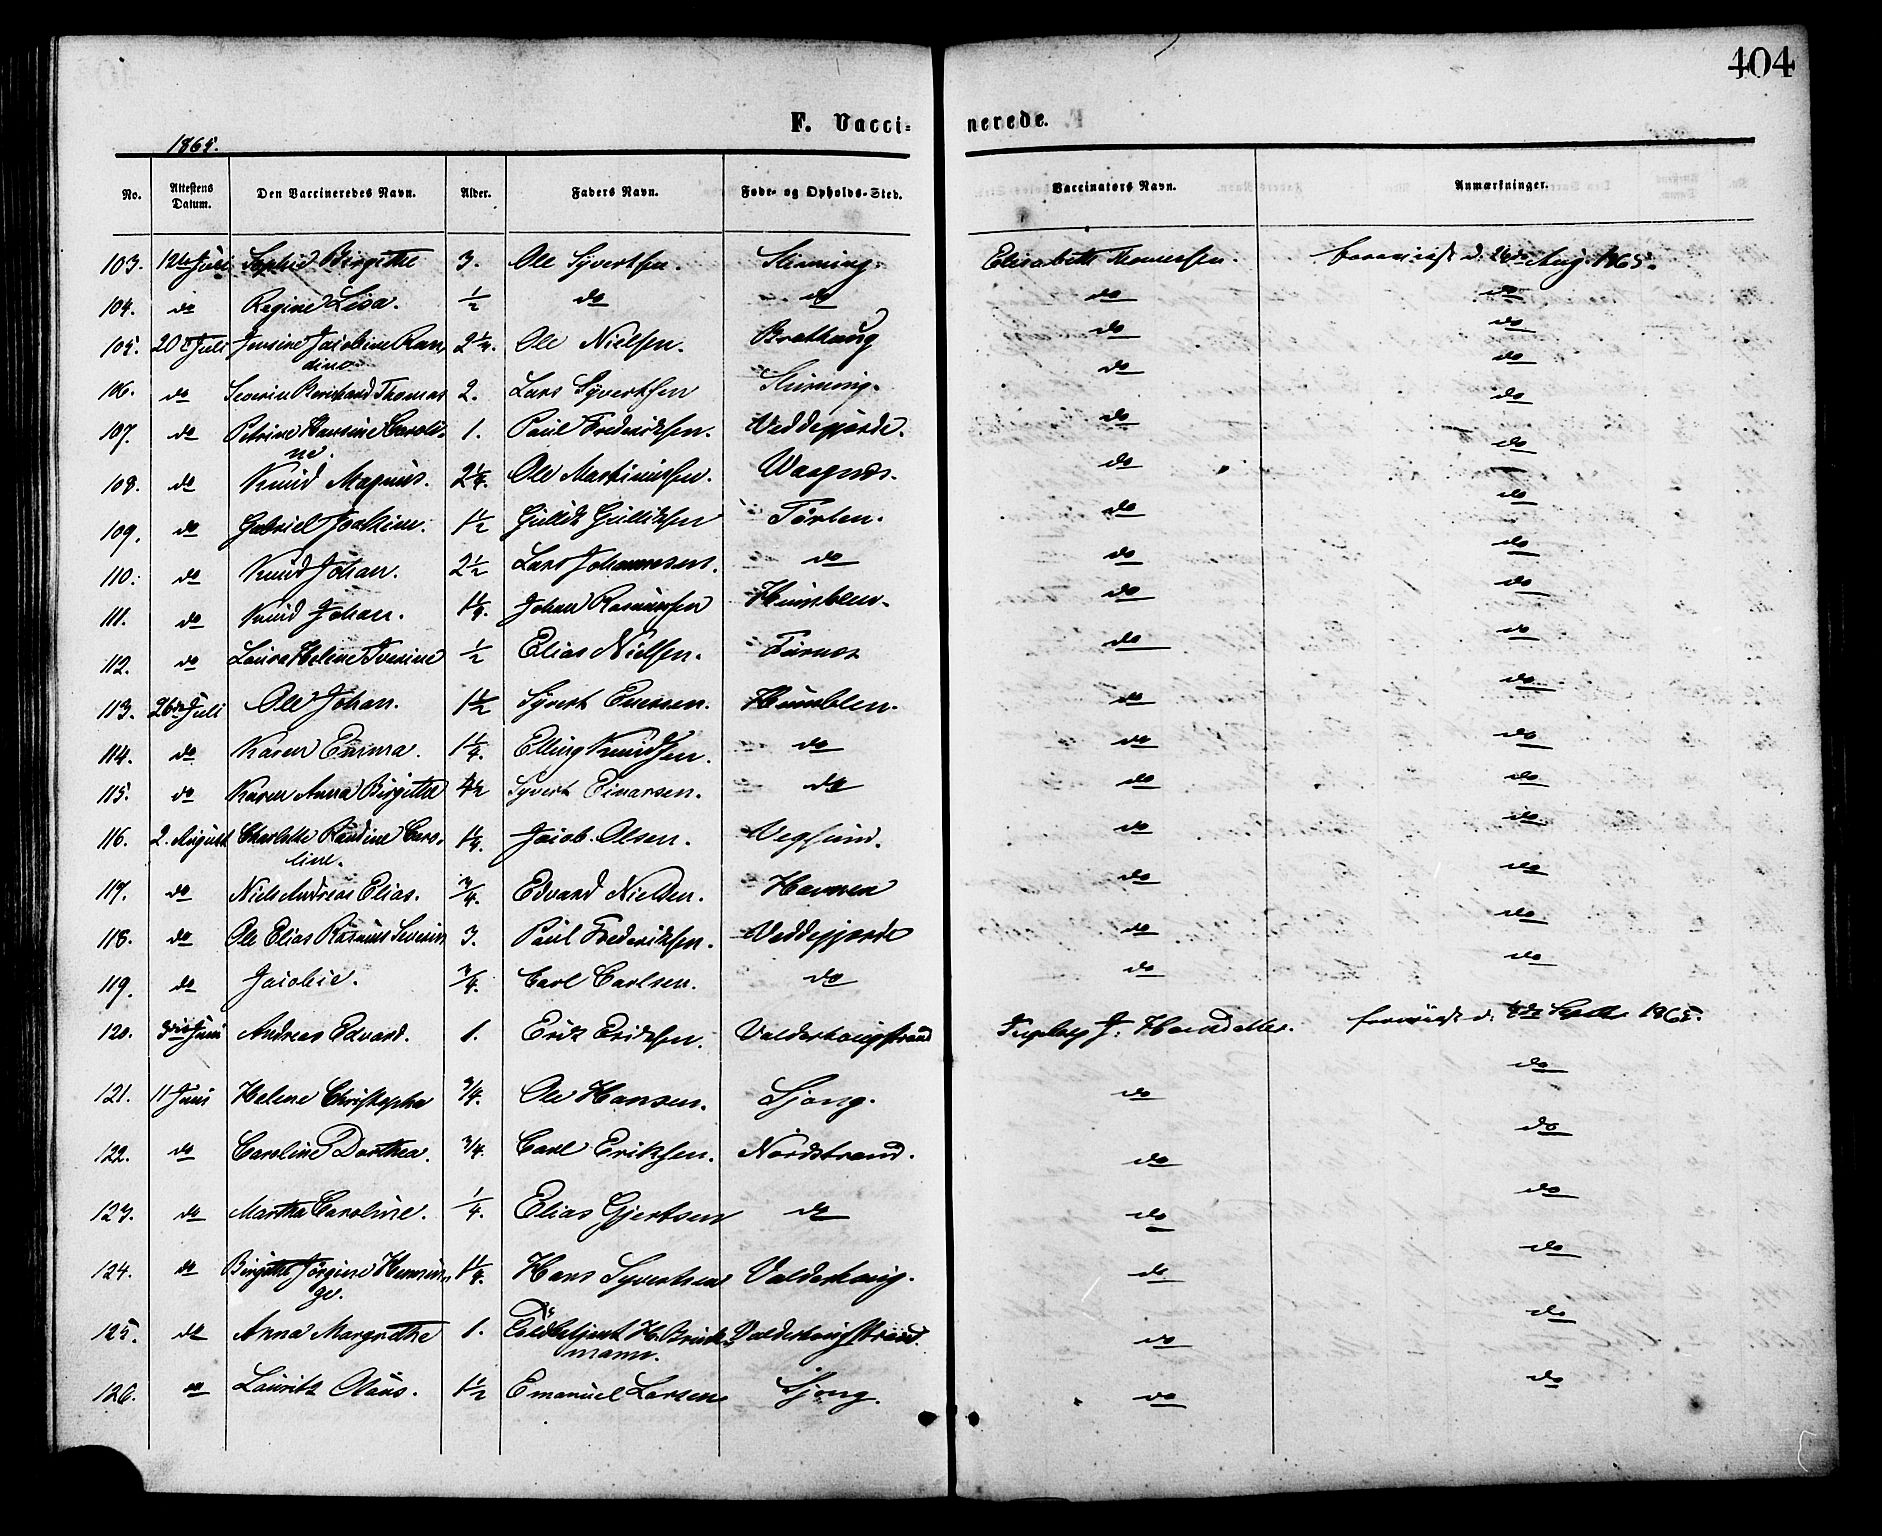 404
F. Vacci-
nerede.
1865.
No. Attestens Datum. Den Vaccineredes Navn. Alder. Faders Navn. Føde- og Opholds-Sted. Vaccinators Navn. Anmærkninger.
103. 12te Juli Sophie Birgithe 3. Ole Syvertsen. Elisabeth d. Aug. 1865.
104. do Regine Lisa. ½ do do do do
105. 20de Juli Jensine Jacobine Ran- 2¼. Ole Nielsen. Brathaug do do
dine
106. do Severin Bernhard Thomas 2. Lars Syvertsen do do
107. do Petrine Hansine Caroli- 1. Paul Frederiksen. Veddegjærde. do do
ne.
108. do Knud Magnus. 2¼. Ole Martinussen. Vaagnæs. do do
109. do Gabriel Joakim. 1½ Gullik Gulliksen do do
110. do Knud Johan. 2½ Lars Johannesen. do do do
111. do Knud Johan. 1¼. Johan Rasmussen Humblen. do do
112. do Laura Helene Iversine ½ Elias Nielsen. Furnes do do
113. 26de Juli Ole Johan. 1½ Syvert Humblen. do do
114. do Karen Emma. 1¼. Elling Knudsen. do do do
115. do Karen Anna Birgithe Syvert Einarsen. do do do
116. 2. August Charlotte Randine Caro- 1¼. Jacob Olsen. Vegsund. do do
line.
117. do Niels Andreas Elias. ¾. Edvard Nielsen. Havnen do do
118. do Ole Elias Rasmus Severin 3. Paul Frederiksen. Veddegjærde do do
119. do Jacobie. ¾. Carl Carlsen. do do do
120. Juni Andreas Edvard. 1. Erik Eriksen. Valderhaugstrand Ingeborg J. d. Septb. 1865.
121. 11 Juni Helene Christopha ¾. Ole Hansen. Ljong. do do
122. do Caroline Dorthea. ¾. Carl Eriksen. Nordstrand. do do
123. do Martha Caroline. ¼. Elias Gjertsen do do do
124. do Birgithe Jørgine Hennin- 1¼. Hans Syvertsen Valderhaug. do do
ge.
125. do Anna Margrethe 1. H. Brink- Valderhaugstrand. do do
mann.
126. do Lauritz Olaus. 1½ Emanuel Larsen Ljong. do do